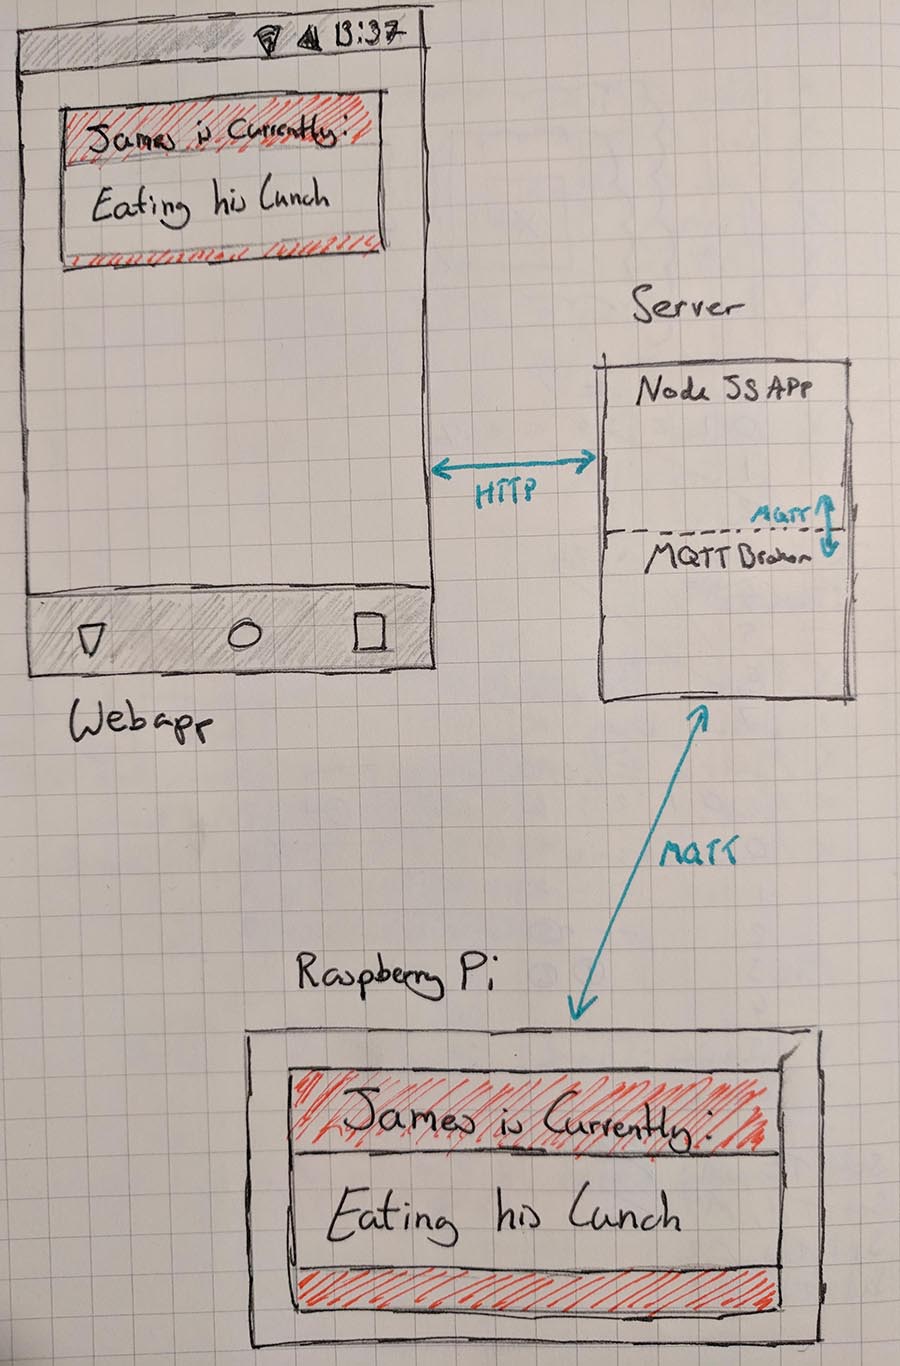 13:37
James is Currently:
Eating his Lunch
Webapp
HTTP
Server
Node JS App
MQTT
MQTT Broker
MQTT
Raspberry Pi
James is Currently:
Eating his Lunch